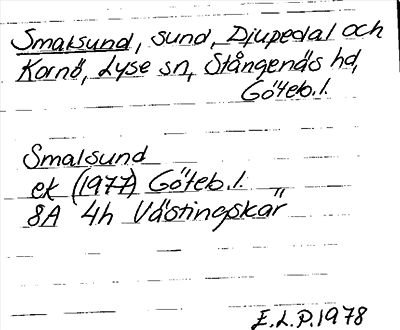 Smalsund, sund, Djupedal och
Kornö, Lyse sn, Stångenäs hd,
Göteb.l.
Smalsund
ek (1977) Göteb.l.
8A 4h Västingskär
E.L.P.1978